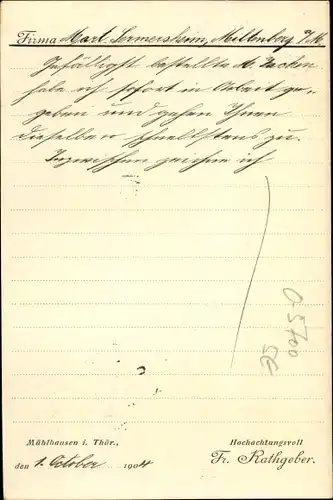 Firma Marl. Sermersheim, Miltenberg a/M.
Gefälligst bestellte Jacken
habe ich sofort in Arbeit ge-
geben und gehen Ihnen
dieselben schnellstens zu.
Inzwischen zeichne ich
0-5700
SC
Mühlhausen i. Thür.,
den 1. October 1904
Hochachtungsvoll
Fr. Rathgeber.